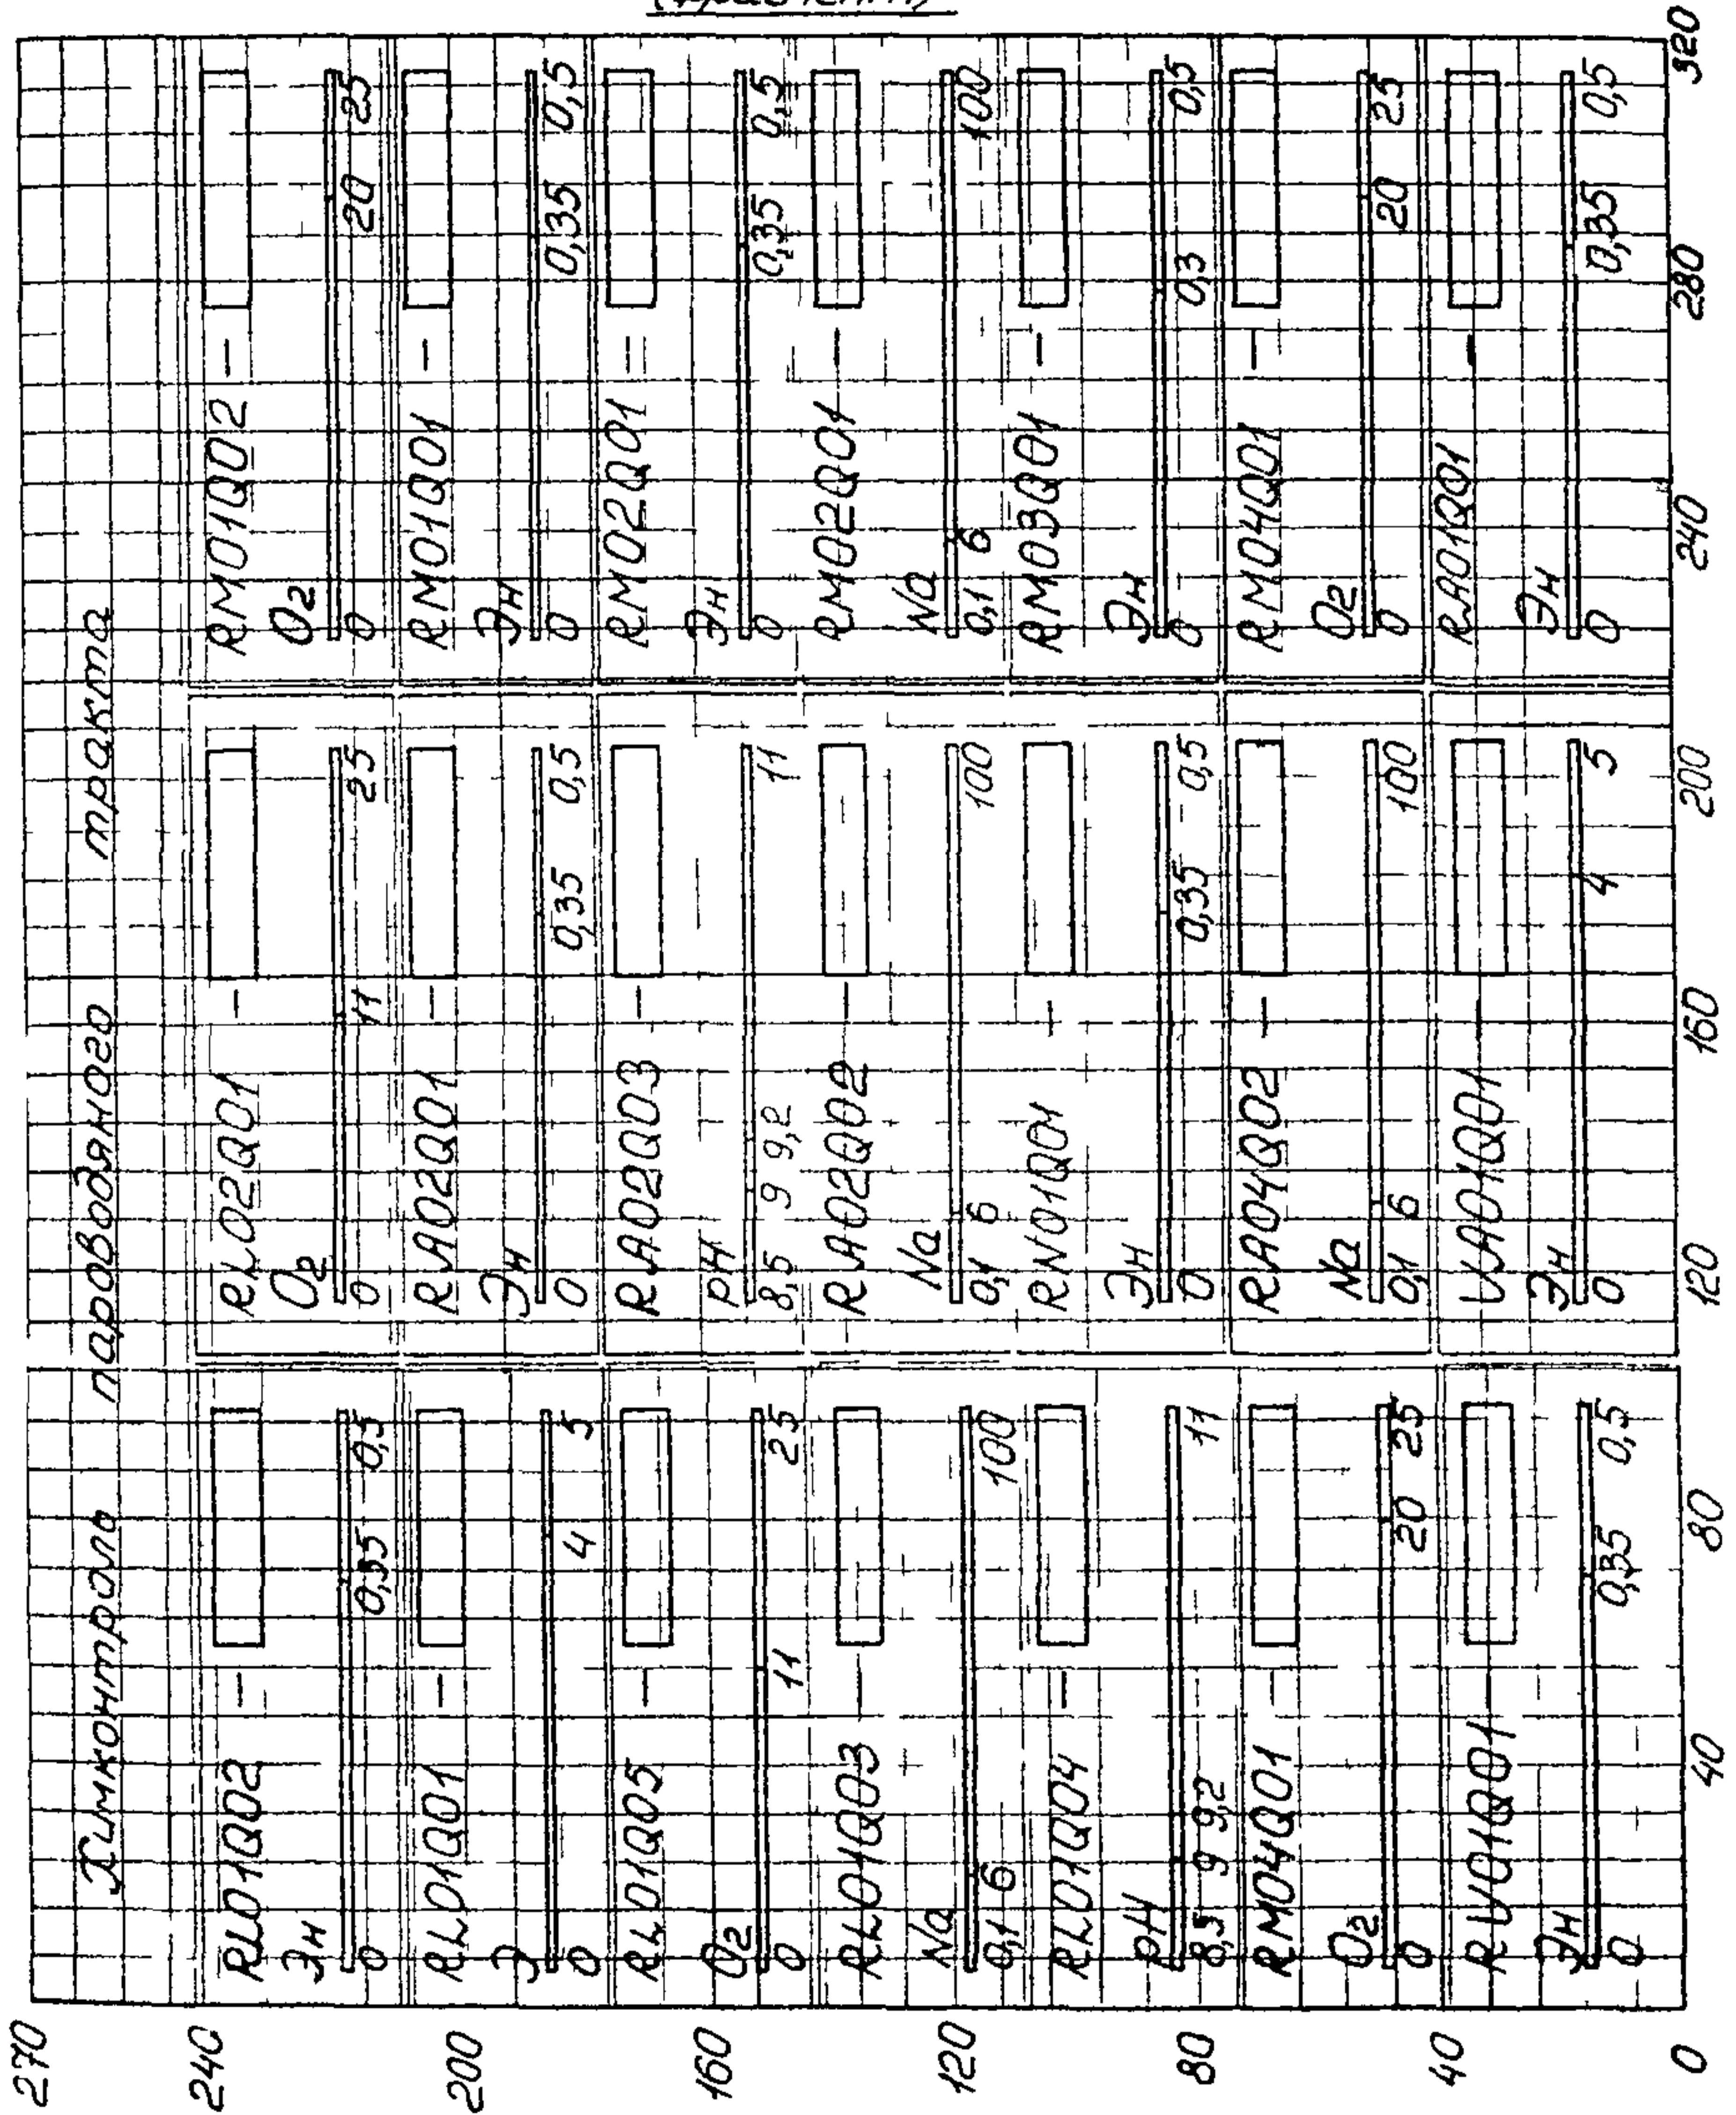 Химконтроль пароводяного тракта
270
240
200
160
120
80
40
0
RL01Q02 —
Эн
0 0,35 0,5
RL01Q01 —
Э
0 4 5
RL01Q05 —
O2
0 11 25
RL01Q03 —
Na
0,1 6 100
RL01Q04 —
pH
8,5 9 9,2 11
RM04Q01 —
O2
0 20 25
RV01Q01 —
Эн
0 0,35 0,5
RL02Q01 —
O2
0 11 25
RA02Q01 —
Эн
0 0,35 0,5
RA02Q03 —
pH
8,5 9 9,2 11
RA02Q02 —
Na
0,1 6 100
RN01Q01 —
Эн
0 0,35 0,5
RA04Q02 —
Na
0,1 6 100
VA01Q01 —
Эн
0 4 5
RM01Q02 —
O2
0 20 25
RM01Q01 —
Эн
0 0,35 0,5
RM02Q01 =
Эн
0 0,35 0,5
RM02Q01 —
Na
0,1 6 100
RM03Q01 —
Эн
0 0,3 0,5
RM04Q01 —
O2
0 20 25
RA01Q01 —
Эн
0 0,35 0,5
40 80 120 160 200 240 280 320